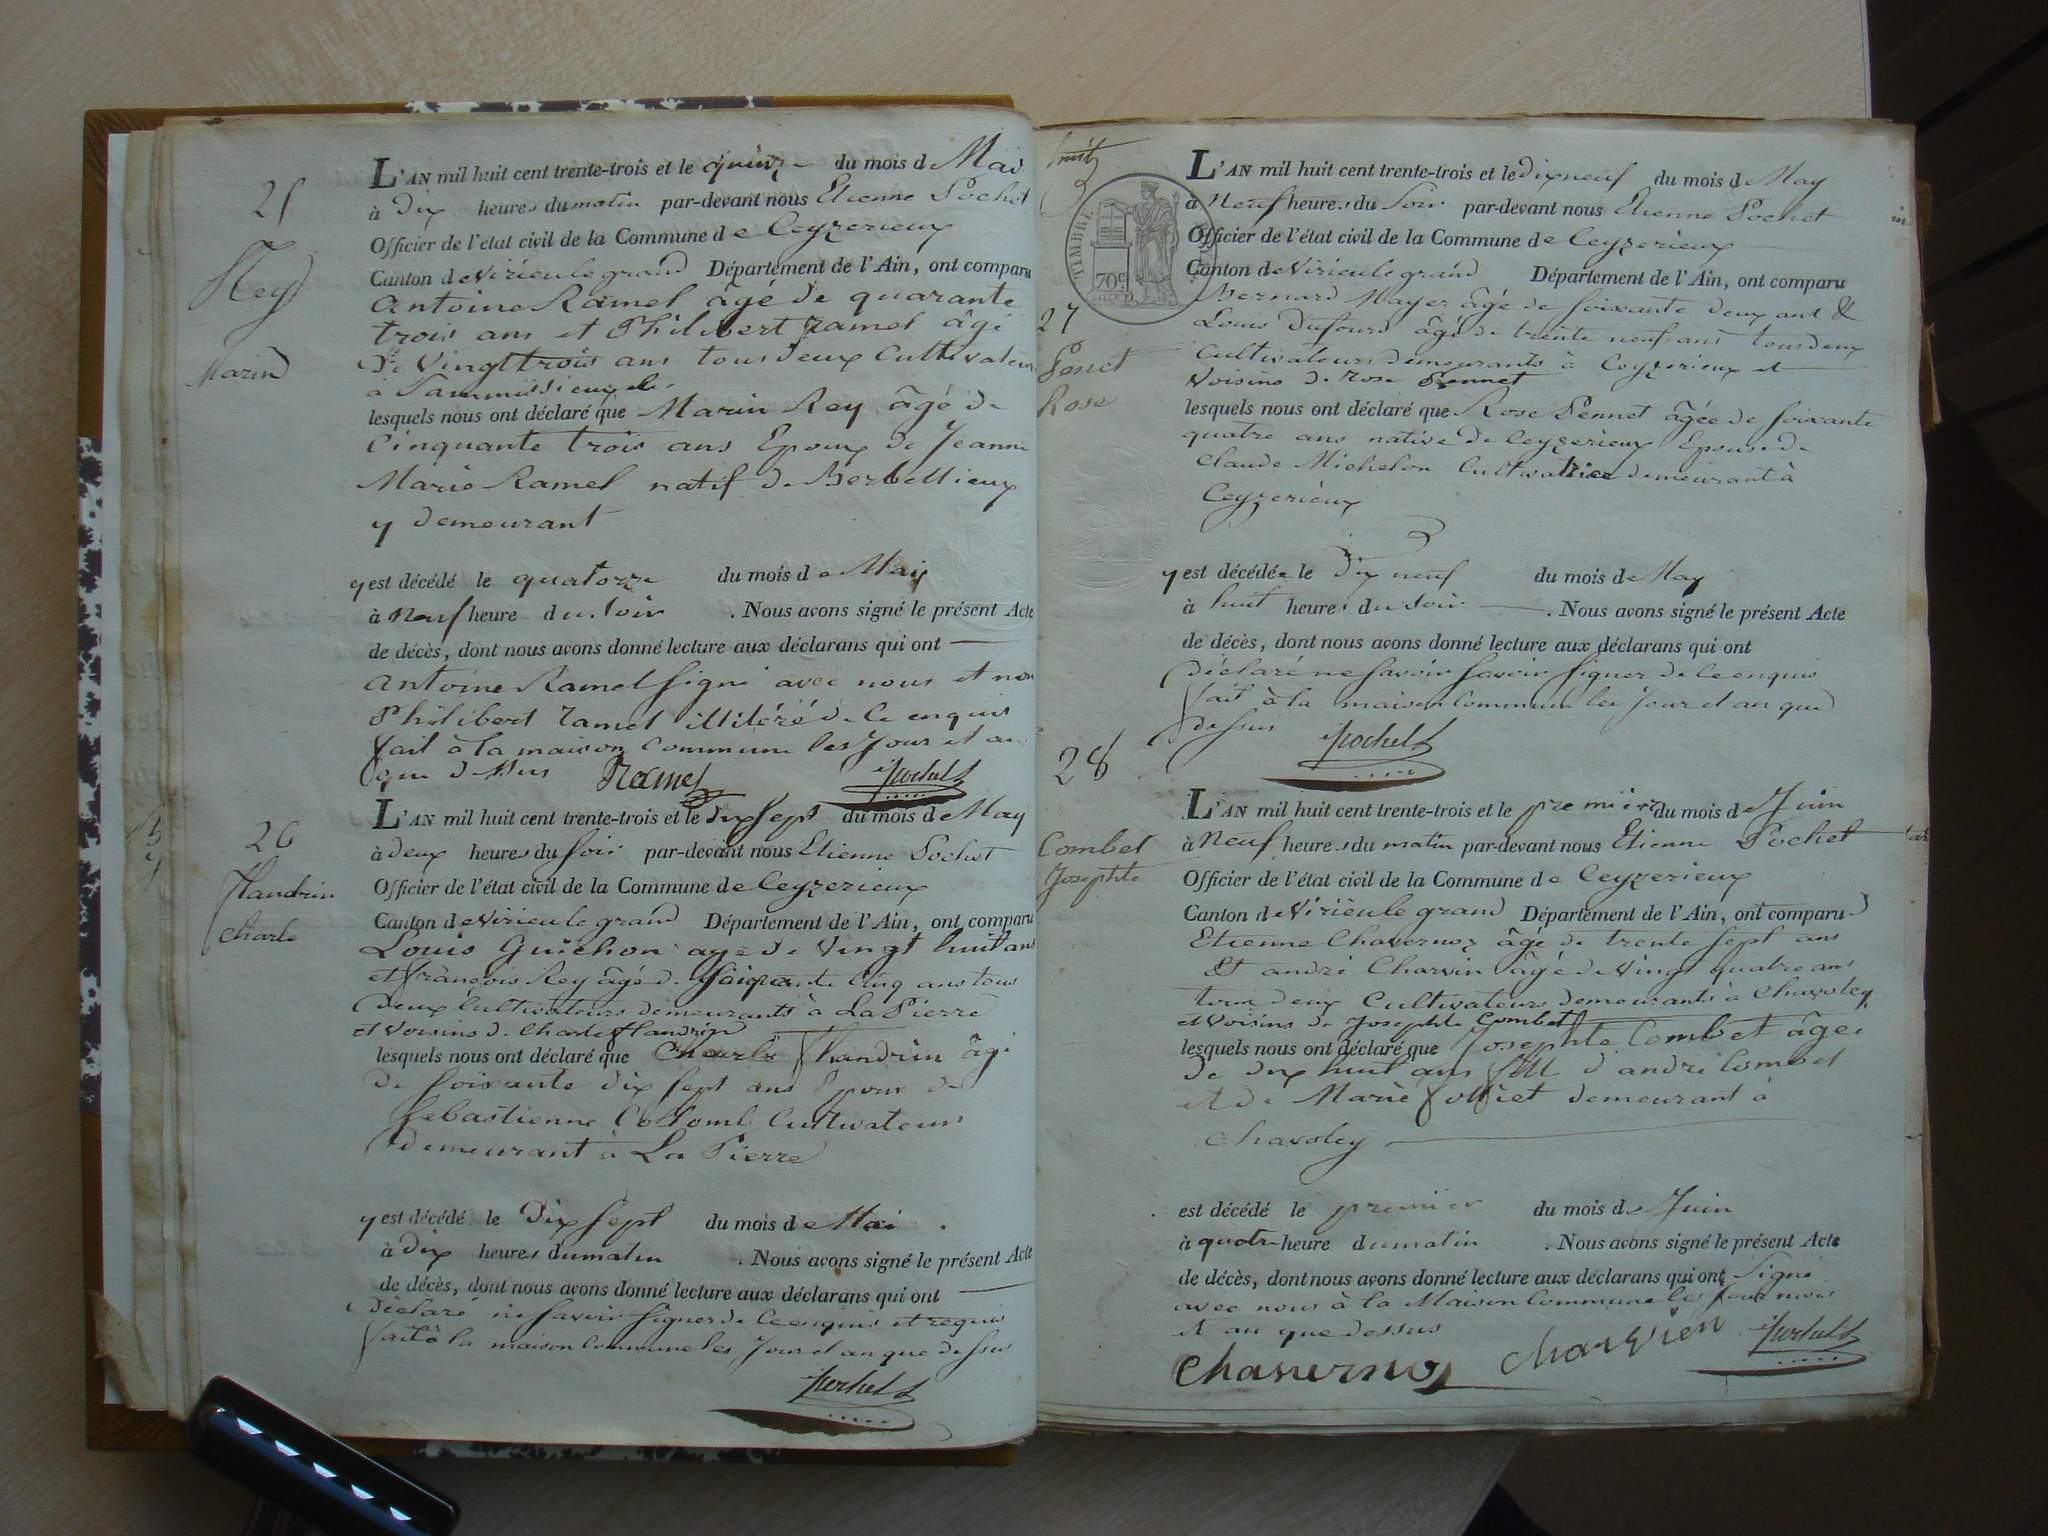 25
Rey
Marin
L'AN mil huit cent trente-trois et le quinze du mois de Mai
à dix heures du matin par-devant nous Etienne Pochet
Officier de l'état civil de la Commune de Ceyzerieux
Canton de Virieu le grand Département de l'Ain, ont comparu
Antoine Ramel âgé de quarante
trois ans et Philibert Ramel âgé
de Vingt trois ans tous deux Cultivateurs
à
lesquels nous ont déclaré que Marin Rey âgé de
Cinquante trois ans Epoux de Jeanne
Marie Ramel natif de
y demeurant
y est décédé le quatorze du mois de Mai
à Neuf heure du Soir . Nous avons signé le présent Acte
de décès, dont nous avons donné lecture aux déclarans qui ont
Antoine Ramel Signé avec nous et non
Philibert Ramel illitéré de ce enquis
fait à la maison Commune les Jour et an
que dessus Ramel Pochet
26
Flandrin
Charle
L'AN mil huit cent trente-trois et le dix Sept du mois de May
à deux heures du Soir par-devant nous Etienne Pochet
Officier de l'état civil de la Commune de Ceyzerieux
Canton de Virieu le grand Département de l'Ain, ont comparu
Louis Guichon agé de Vingt huit ans
et françois Rey âgé de Soixante Cinq ans tous
deux Cultivateurs demeurants à La Pierre
et Voisins de Charle Flandrin
lesquels nous ont déclaré que Charle Flandrin âgé
de Soixante dix Sept ans Epoux de
Sebastienne Collomb Cultivateur
demeurant à La Pierre
y est décédé le Dix Sept du mois de Mai .
à Dix heures du matin . Nous avons signé le présent Acte
de décès, dont nous avons donné lecture aux déclarans qui ont
Déclaré ne Savoir Signer de Ce enquis et requis
fait à la maison Commune les Jour et an que dessus
Pochet
huit
TIMBRE
70c
27
Penet
Rose
L'AN mil huit cent trente-trois et le dix neuf du mois de May
à Neuf heures du Soir par-devant nous Etienne Pochet
Officier de l'état civil de la Commune de Ceyzerieux
Canton de Virieu le grand Département de l'Ain, ont comparu
Bernard Mayer âgé de Soixante deux ans &
Louis Dufour âgé de trente neuf ans tous deux
Cultivateurs demeurants à Ceyzerieux et
Voisins de Rose Pennet
lesquels nous ont déclaré que Rose Pennet âgée de Soixante
quatre ans native de Ceyzerieux Epouse de
Claude Michelon Cultivatrice demeurant à
Ceyzerieux
y est décédée le Dix neuf du mois de May
à huit heures du Soir . Nous avons signé le présent Acte
de décès, dont nous avons donné lecture aux déclarans qui ont
Déclaré ne Savoir Savoir Signer de Ce enquis
fait à la maison Commune les Jour et an que
dessus Pochet
28
Combet
Josephte
L'AN mil huit cent trente-trois et le premier du mois de Juin
à Neuf heures du matin par-devant nous Etienne Pochet
Officier de l'état civil de la Commune de Ceyzerieux
Canton de Virieu le grand Département de l'Ain, ont comparu
Etienne Chavernoz âgé de trente Sept ans
Et andré Charvin âgé de Vingt quatre ans
tous deux Cultivateurs demeurants à Chavoley
et Voisins de Josephte Combet
lesquels nous ont déclaré que Josephte Combet âgée
de dix huit ans fille d'andré Combet
et de Marie Jolliet demeurant à
Chavoley
est décédé le premier du mois de Juin
à quatre heure du matin . Nous avons signé le présent Acte
de décès, dont nous avons donné lecture aux déclarans qui ont Signé
avec nous à la Maison Commune les Jour mois
et an que dessus
Chavernoz Pochet